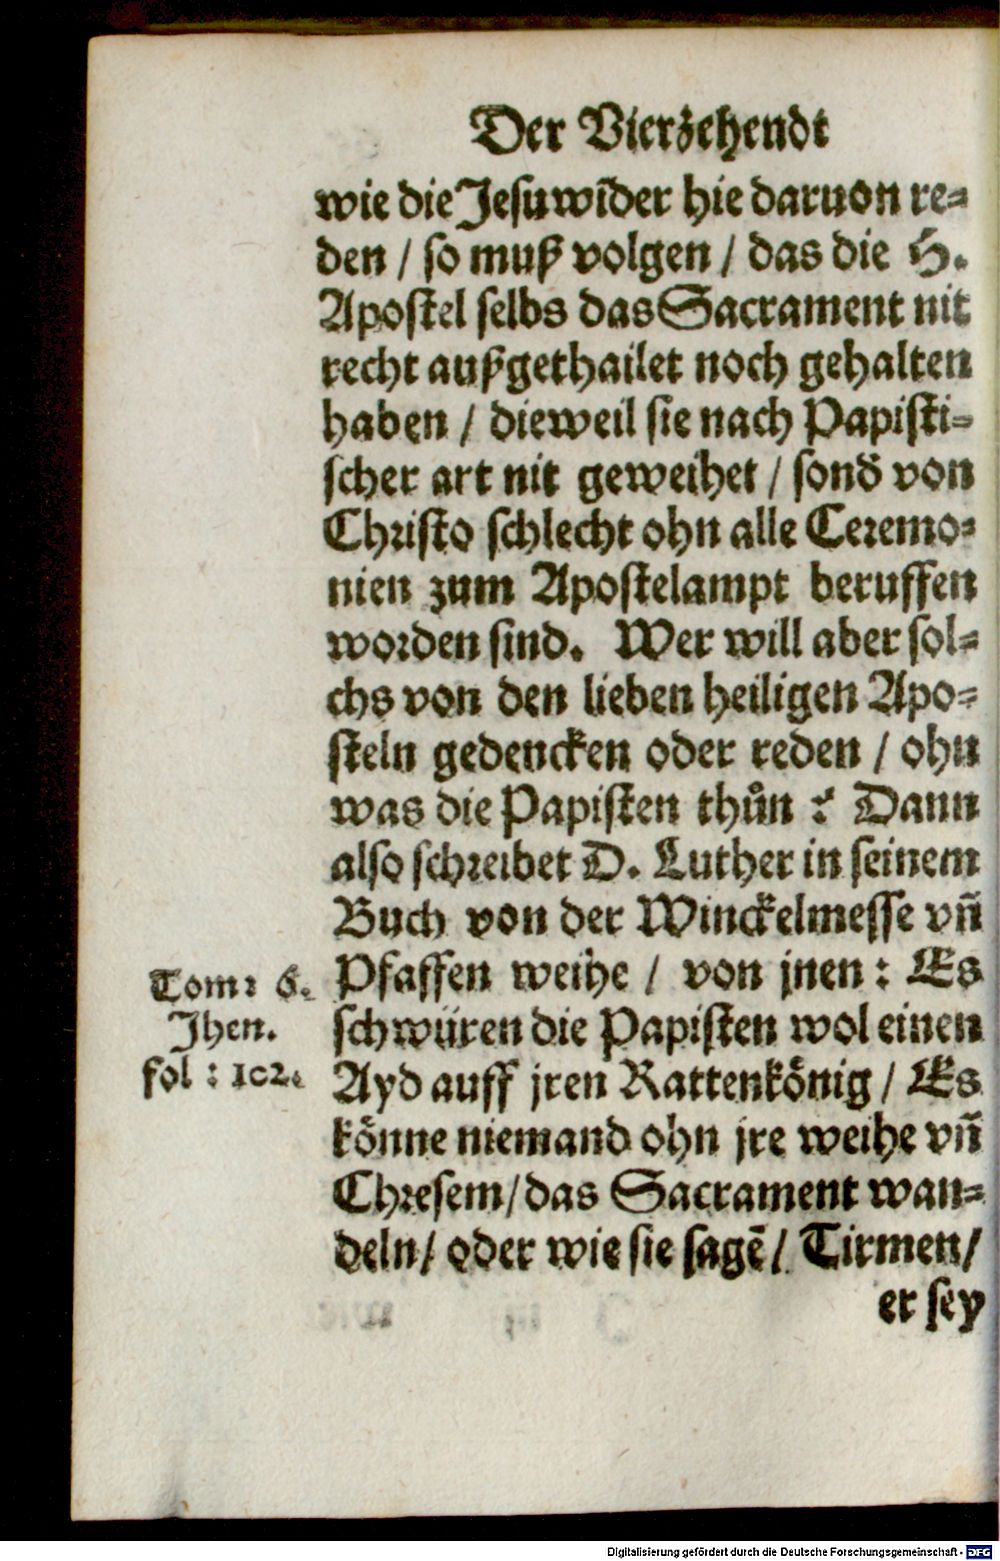 Der Vierzehendt
wie die Jesuwider hie daruon re=
den / so muß volgen / das die H.
Apostel selbs das Sacrament nit
recht außgethailet noch gehalten
haben / dieweil sie nach Papisti=
scher art nit geweihet / sond̕ von
Christo schlecht ohn alle Ceremo=
nien zum Apostelampt beruffen
worden sind. Wer will aber sol=
chs von den lieben heiligen Apo=
steln gedencken oder reden / ohn
was die Papisten thůn ? Dann
also schreibet D. Luther in seinem
Buch von der Winckelmesse vn̄
Pfaffen weihe / von jnen : Es
schwüren die Papisten wol einen
Ayd auff jren Rattenkönig / Es
könne niemand ohn jre weihe vn̄
Chresem / das Sacrament wan=
deln / oder wie sie sagē / Tirmen /
er sey
Tom: 6.
Jhen.
fol : 102.
Digitalisierung gefördert durch die Deutsche Forschungsgemeinschaft - DFG